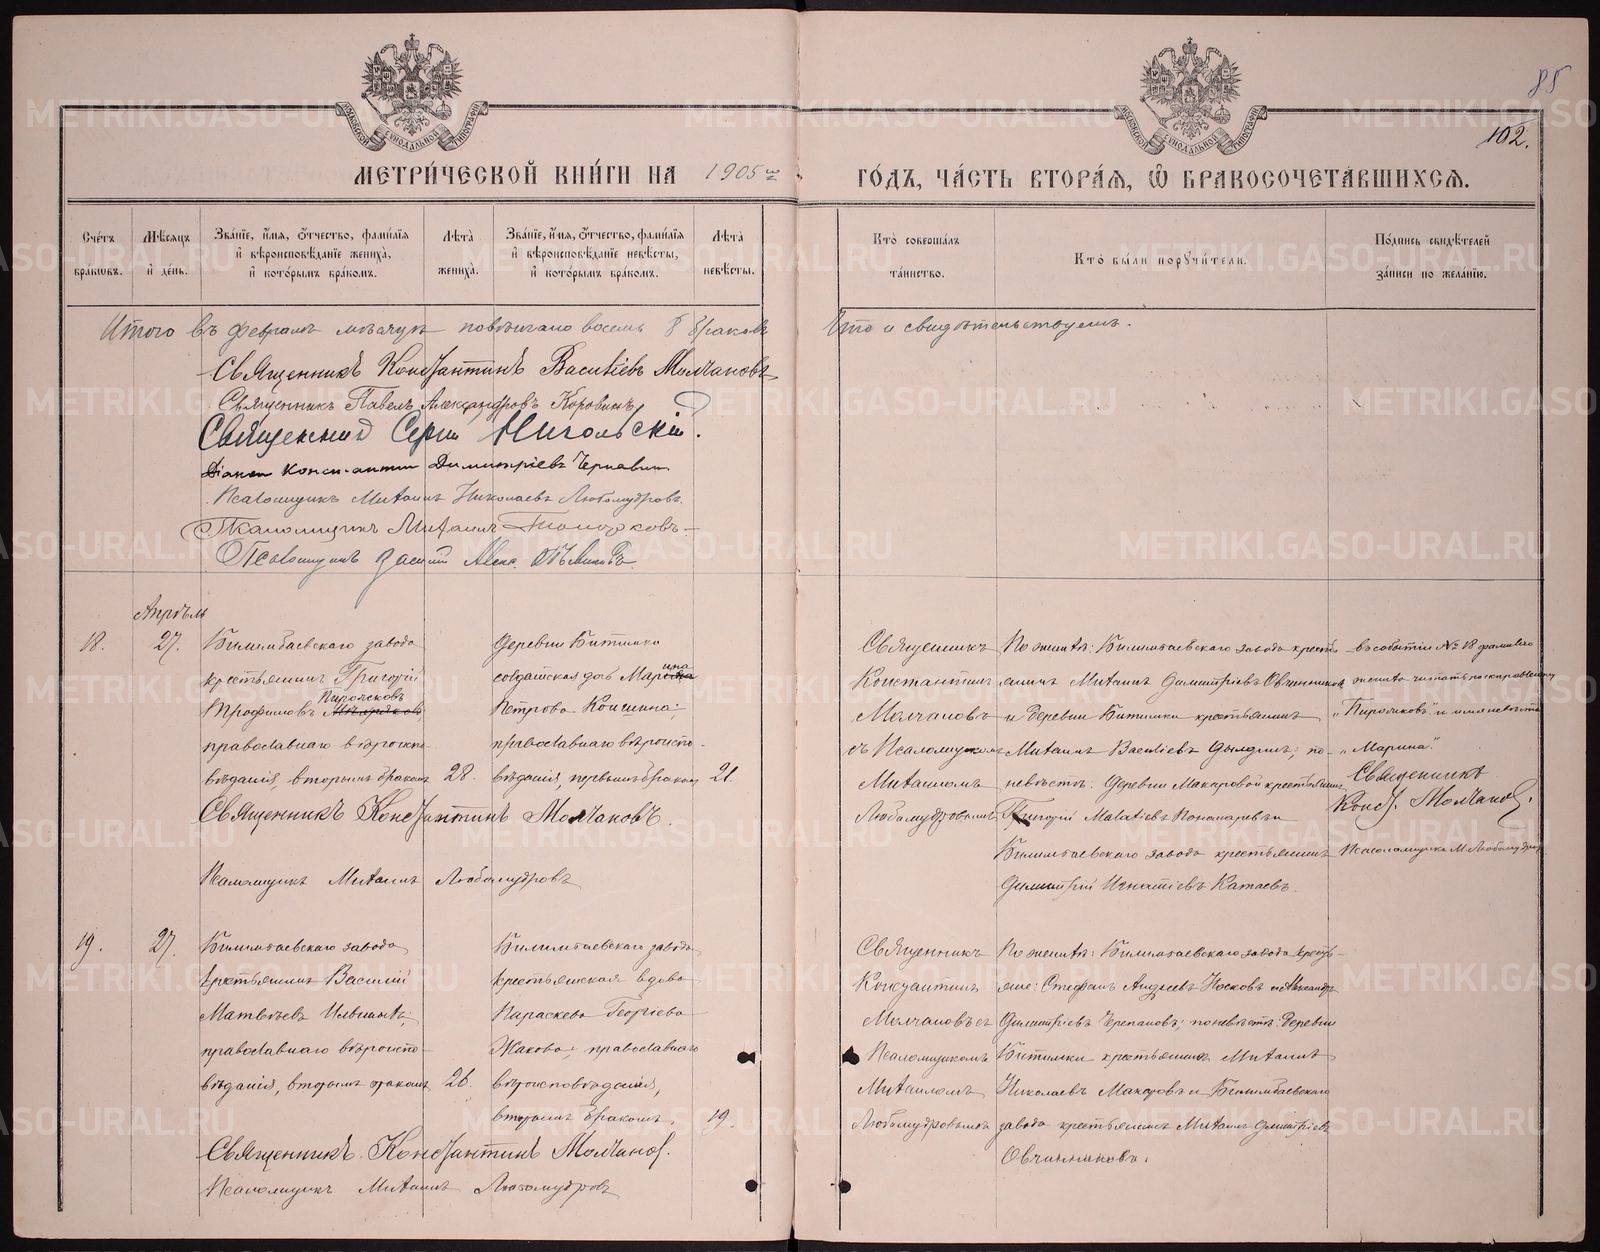 85
102.
МЕТРИ́ЧЕСКОЙ КНИ́ГИ НА 1905 й
ГО́ДЪ, ЧА́СТЬ ВТОРА́Я, Ѡ҆ БРАКОСОЧЕТА́ВШИХСЯ.
Сче́тъ бра́ковъ.
Мѣ́сяцъ и҆ де́нь.
Зва́нїе, и҆́мя, ѻ҆́тчество, фами́лїя
и҆ вѣроисповѣ́данїе жениха̀,
и҆ кото́рымъ бра́комъ.
Лѣ́та жениха̀.
Зва́нїе, и҆́мя, ѻ҆́тчество, фами́лїя
и҆ вѣроисповѣ́данїе невѣ́сты,
и҆ кото́рымъ бра́комъ.
Лѣ́та невѣ́сты.
Кто̀ соверша́лъ та́инство.
Кто̀ бы́ли порꙋчи́тели.
По́дпись свидѣ́телей за́писи по жела́нїю.
Итого въ февралѣ мѣсяцѣ повѣнчано восемь 8 браковъ
Что и свидѣтельствуемъ.
Священникъ Константинъ Васильевъ Молчановъ
Священникъ Павелъ Александровъ Коровинъ
Священникъ Сергій Никольскій.
Діаконъ Константинъ Димитріевъ
Псаломщикъ Михаилъ Николаевъ Любомудровъ.
Псаломщикъ Михаилъ
Псаломщикъ Василій Алекс.
Апрѣль
18.
27.
Билимбаевскаго завода
крестьянинъ Григорій
Пироженковъ
Трофимовъ
православнаго вѣроиспо-
вѣданія, вторымъ бракомъ
28.
Деревни Битимки
солдатская дочь Марина
Петрова Коншина;
православнаго вѣроиспо-
вѣданія, первымъ бракомъ
21.
Священникъ Константинъ Молчановъ.
Псаломщикъ Михаилъ Любомудровъ
Священникъ
Константинъ
Молчановъ
съ Псаломщикомъ
Михаиломъ
Любомудровымъ
По женихѣ: Билимбаевскаго завода кресть-
янинъ Михаилъ Димитріевъ Овчинниковъ
и деревни Битимки крестьянинъ
Михаилъ Васильевъ Дылдинъ; по
невѣстѣ: деревни Макаровой крестьянинъ
Григорій Матвѣевъ Пономаревъ и
Билимбаевскаго завода крестьянинъ
Димитрій Игнатіевъ Катаевъ.
въ событіи № 18 фамилію
жениха читать по исправленному
и имя невѣсты
„Марина".
Священникъ
Конст. Молчановъ.
Псаломщикъ М. Любомудровъ
19.
27.
Билимбаевскаго завода
крестьянинъ Василій
Матвѣевъ Ильиныхъ;
православнаго вѣроиспо-
вѣданія, вторымъ бракомъ
26.
Билимбаевскаго завода
крестьянская вдова
Параскева Георгіева
Жакова; православнаго
вѣроисповѣданія,
вторымъ бракомъ.
19.
Священникъ Константинъ Молчановъ.
Псаломщикъ Михаилъ Любомудровъ
Священникъ
Константинъ
Молчановъ съ
Псаломщикомъ
Михаиломъ
Любомудровымъ
По женихѣ: Билимбаевскаго завода кресть-
яне: Стефанъ Андреевъ Носковъ и Александръ
Димитріевъ Черепановъ; по невѣстѣ: деревни
Битимки крестьянинъ Михаилъ
Николаевъ Макаровъ и Билимбаевскаго
завода крестьянинъ Михаилъ Димитріевъ
Овчинниковъ.